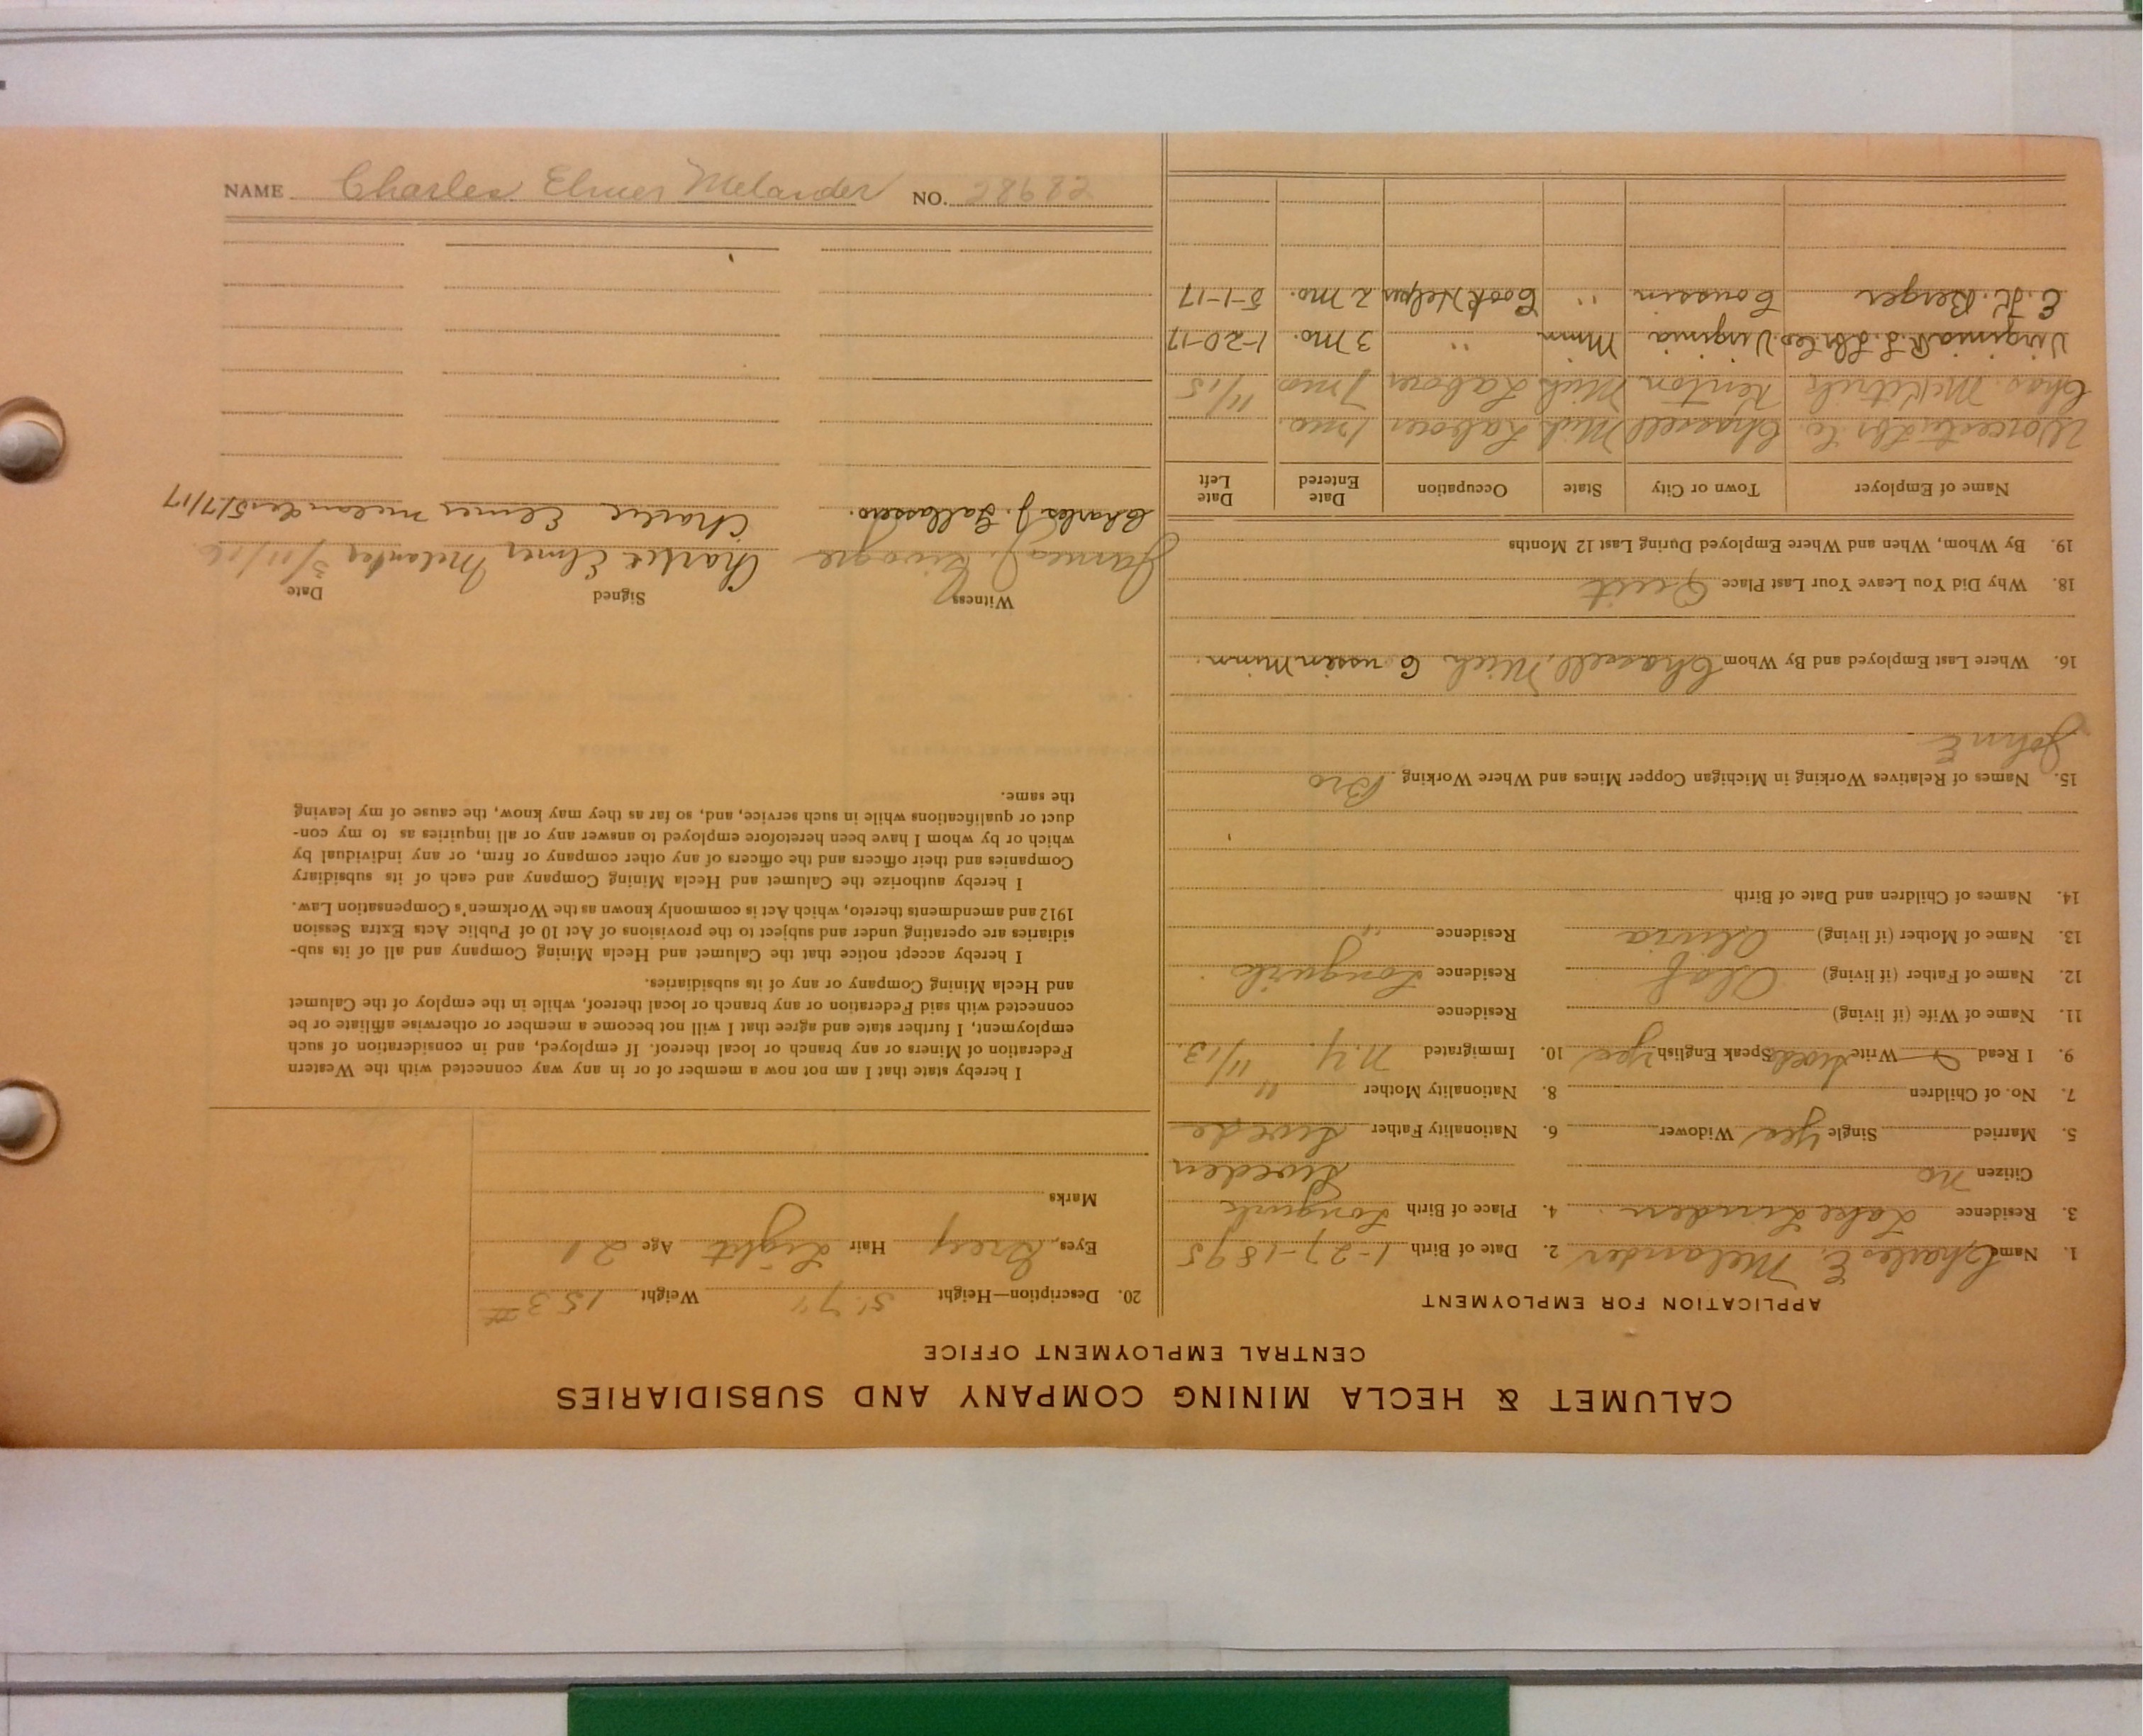 CALUMET & HECLA MINING COMPANY AND SUBSIDIARIES
CENTRAL EMPLOYMENT OFFICE
APPLICATION FOR EMPLOYMENT
1. Name Charles E. Melander 2. Date of Birth 1-27-1895
3. Residence Lake Linden 4. Place of Birth
Citizen no Sweden
5. Married Single Yes Widower 6. Nationality Father Swede
7. No. of Children 8. Nationality Mother "
9. I Read Write Swed Speak English Yes 10. Immigrated N.Y. 11/13
11. Name of Wife (if living) Residence
12. Name of Father (if living) Olaf Residence
13. Name of Mother (if living) Residence "
14. Names of Children and Date of Birth
15. Names of Relatives Working in Michigan Copper Mines and Where Working Bro
John E
16. Where Last Employed and By Whom Chassell, Mich Cussin Minn
18. Why Did You Leave Your Last Place Quit
19. By Whom, When and Where Employed During Last 12 Months
Name of Employer Town or City State Occupation Date Entered Date Left
Worcester Lbr Co. Chassell Mich Laborer 1 mo.
Chas. Kenton Mich Laborer 7 mo 11/15
Virginia & R. L. Lbr. Co. Virginia Minn " 3 mo. 1-20-17
E. H. Berger Coussin " Cook Helper 2 mo. 5-1-17
20. Description—Height 5' 7" Weight 153#
Eyes, Grey Hair Light Age 21
Marks
I hereby state that I am not now a member of or in any way connected with the Western
Federation of Miners or any branch or local thereof. If employed, and in consideration of such
employment, I further state and agree that I will not become a member or otherwise affiliate or be
connected with said Federation or any branch or local thereof, while in the employ of the Calumet
and Hecla Mining Company or any of its subsidiaries.
I hereby accept notice that the Calumet and Hecla Mining Company and all of its sub-
sidiaries are operating under and subject to the provisions of Act 10 of Public Acts Extra Session
1912 and amendments thereto, which Act is commonly known as the Workmen's Compensation Law.
I hereby authorize the Calumet and Hecla Mining Company and each of its subsidiary
Companies and their officers and the officers of any other company or firm, or any individual by
which or by whom I have been heretofore employed to answer any or all inquiries as to my con-
duct or qualifications while in such service, and, so far as they may know, the cause of my leaving
the same.
Witness Signed Date
James J. Charlie Elmer Melander 3/11/16
Charles J. Charlie Elmer Melander 5/7/17
NAME Charles Elmer Melander NO. 28682